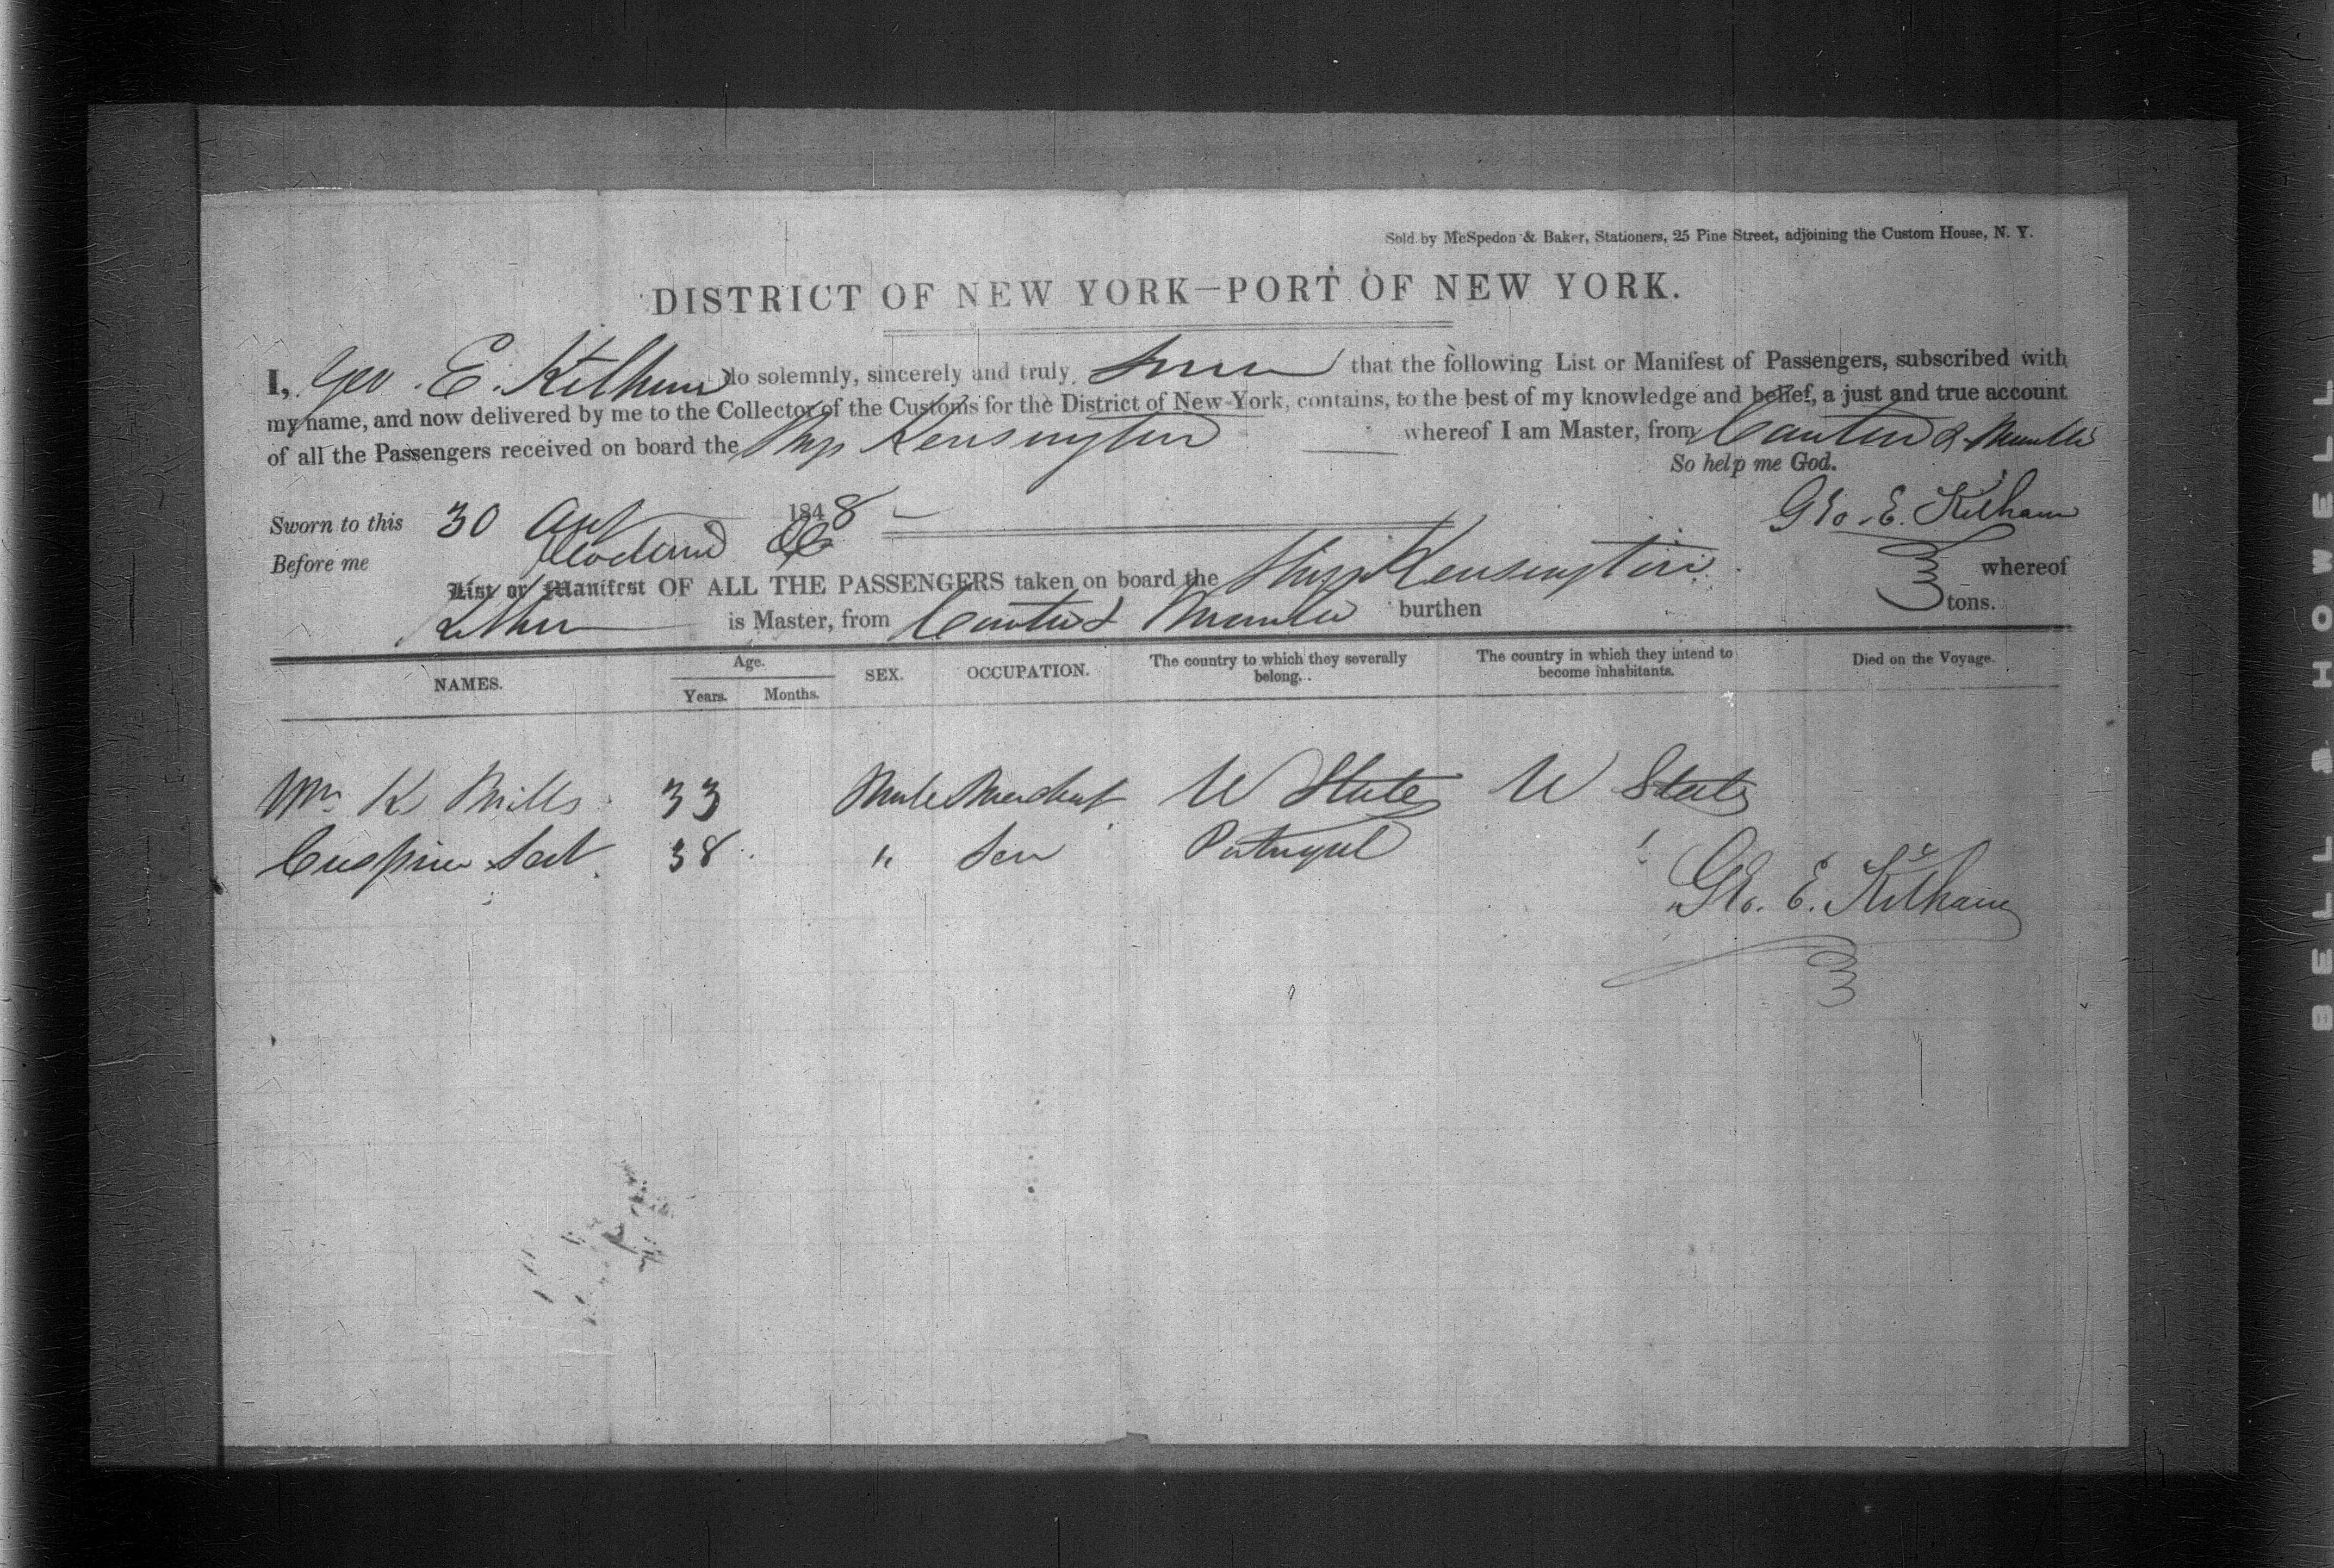 Sold by McSpedon & Baker, Stationers, 25 Pine Street, adjoining the Custom House, N. Y.
DISTRICT OF NEW YORK—PORT OF NEW YORK.
I, Geo. E. Kilham do solemnly, sincerely and truly swear that the following List or Manifest of Passengers, subscribed with
my name, and now delivered by me to the Collector of the Customs for the District of New-York, contains, to the best of my knowledge and belief, a just and true account
of all the Passengers received on board the Ship Kensington whereof I am Master, from Canton & Manila
So help me God.
Sworn to this 30 1848 Geo. E. Kilham
Before me
List or Manifest OF ALL THE PASSENGERS taken on board the Ship Kensington whereof
Kilham is Master, from Canton & Manila burthen tons.
NAMES. Age. Years. Months. SEX. OCCUPATION. The country to which they severally belong. The country in which they intend to become inhabitants. Died on the Voyage.
Wm K Mills 33 Male Merchant U States U States
38 " Portugal "
Geo. E. Kilham
BELL & HOWELL